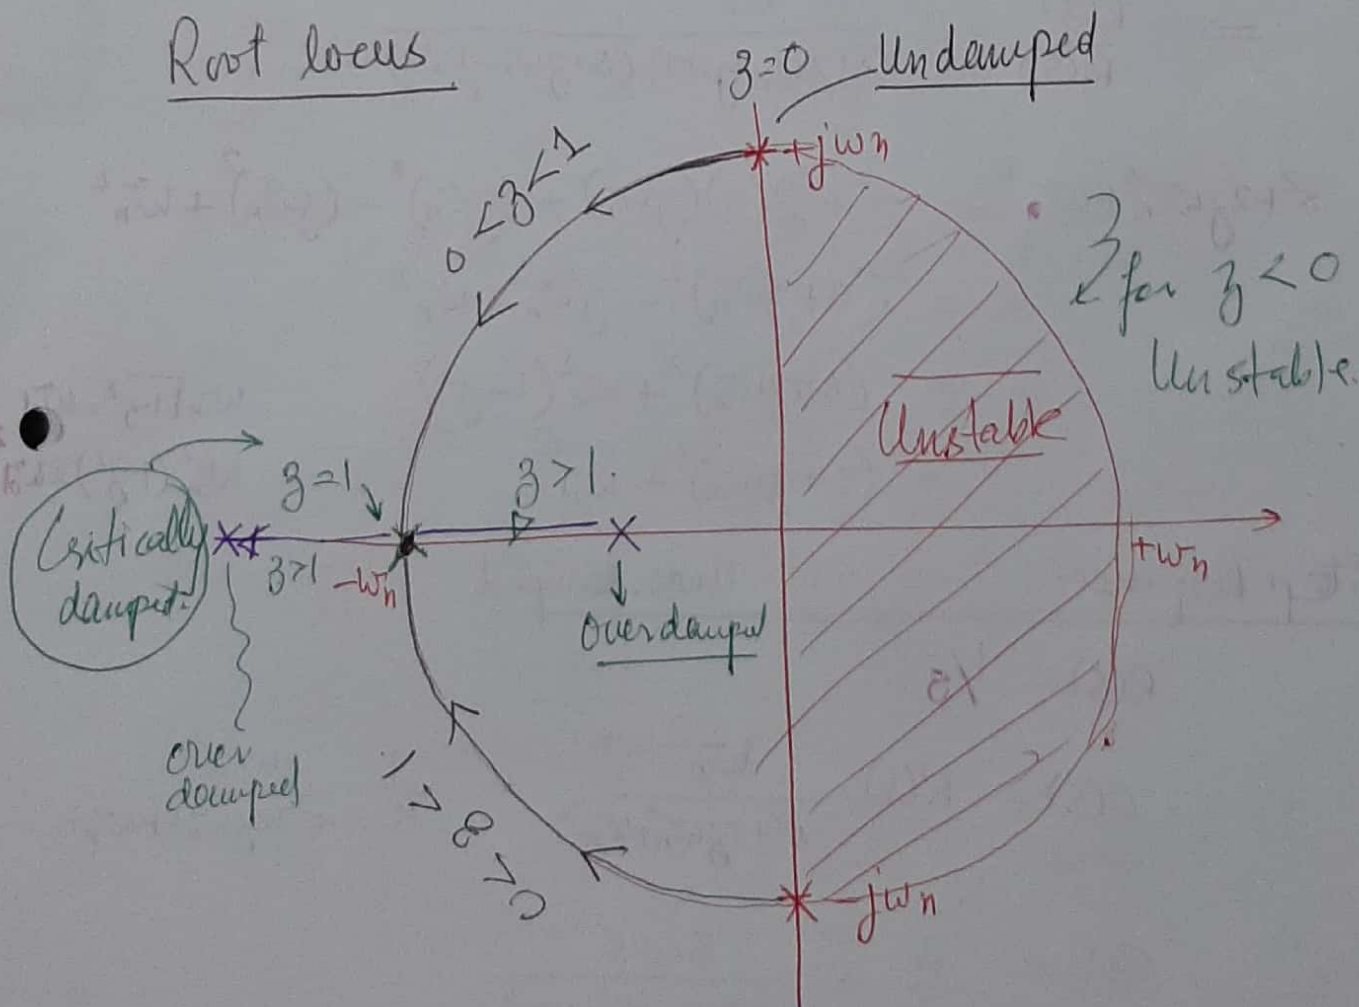 Root locus
z=0
Undamped
+jwn
0<z<1
for z<0
Unstable.
Unstable
z=1
z>1.
Critically
damped.
z>1
-wn
+wn
overdamped
over
damped
0<z<1.
-jwn